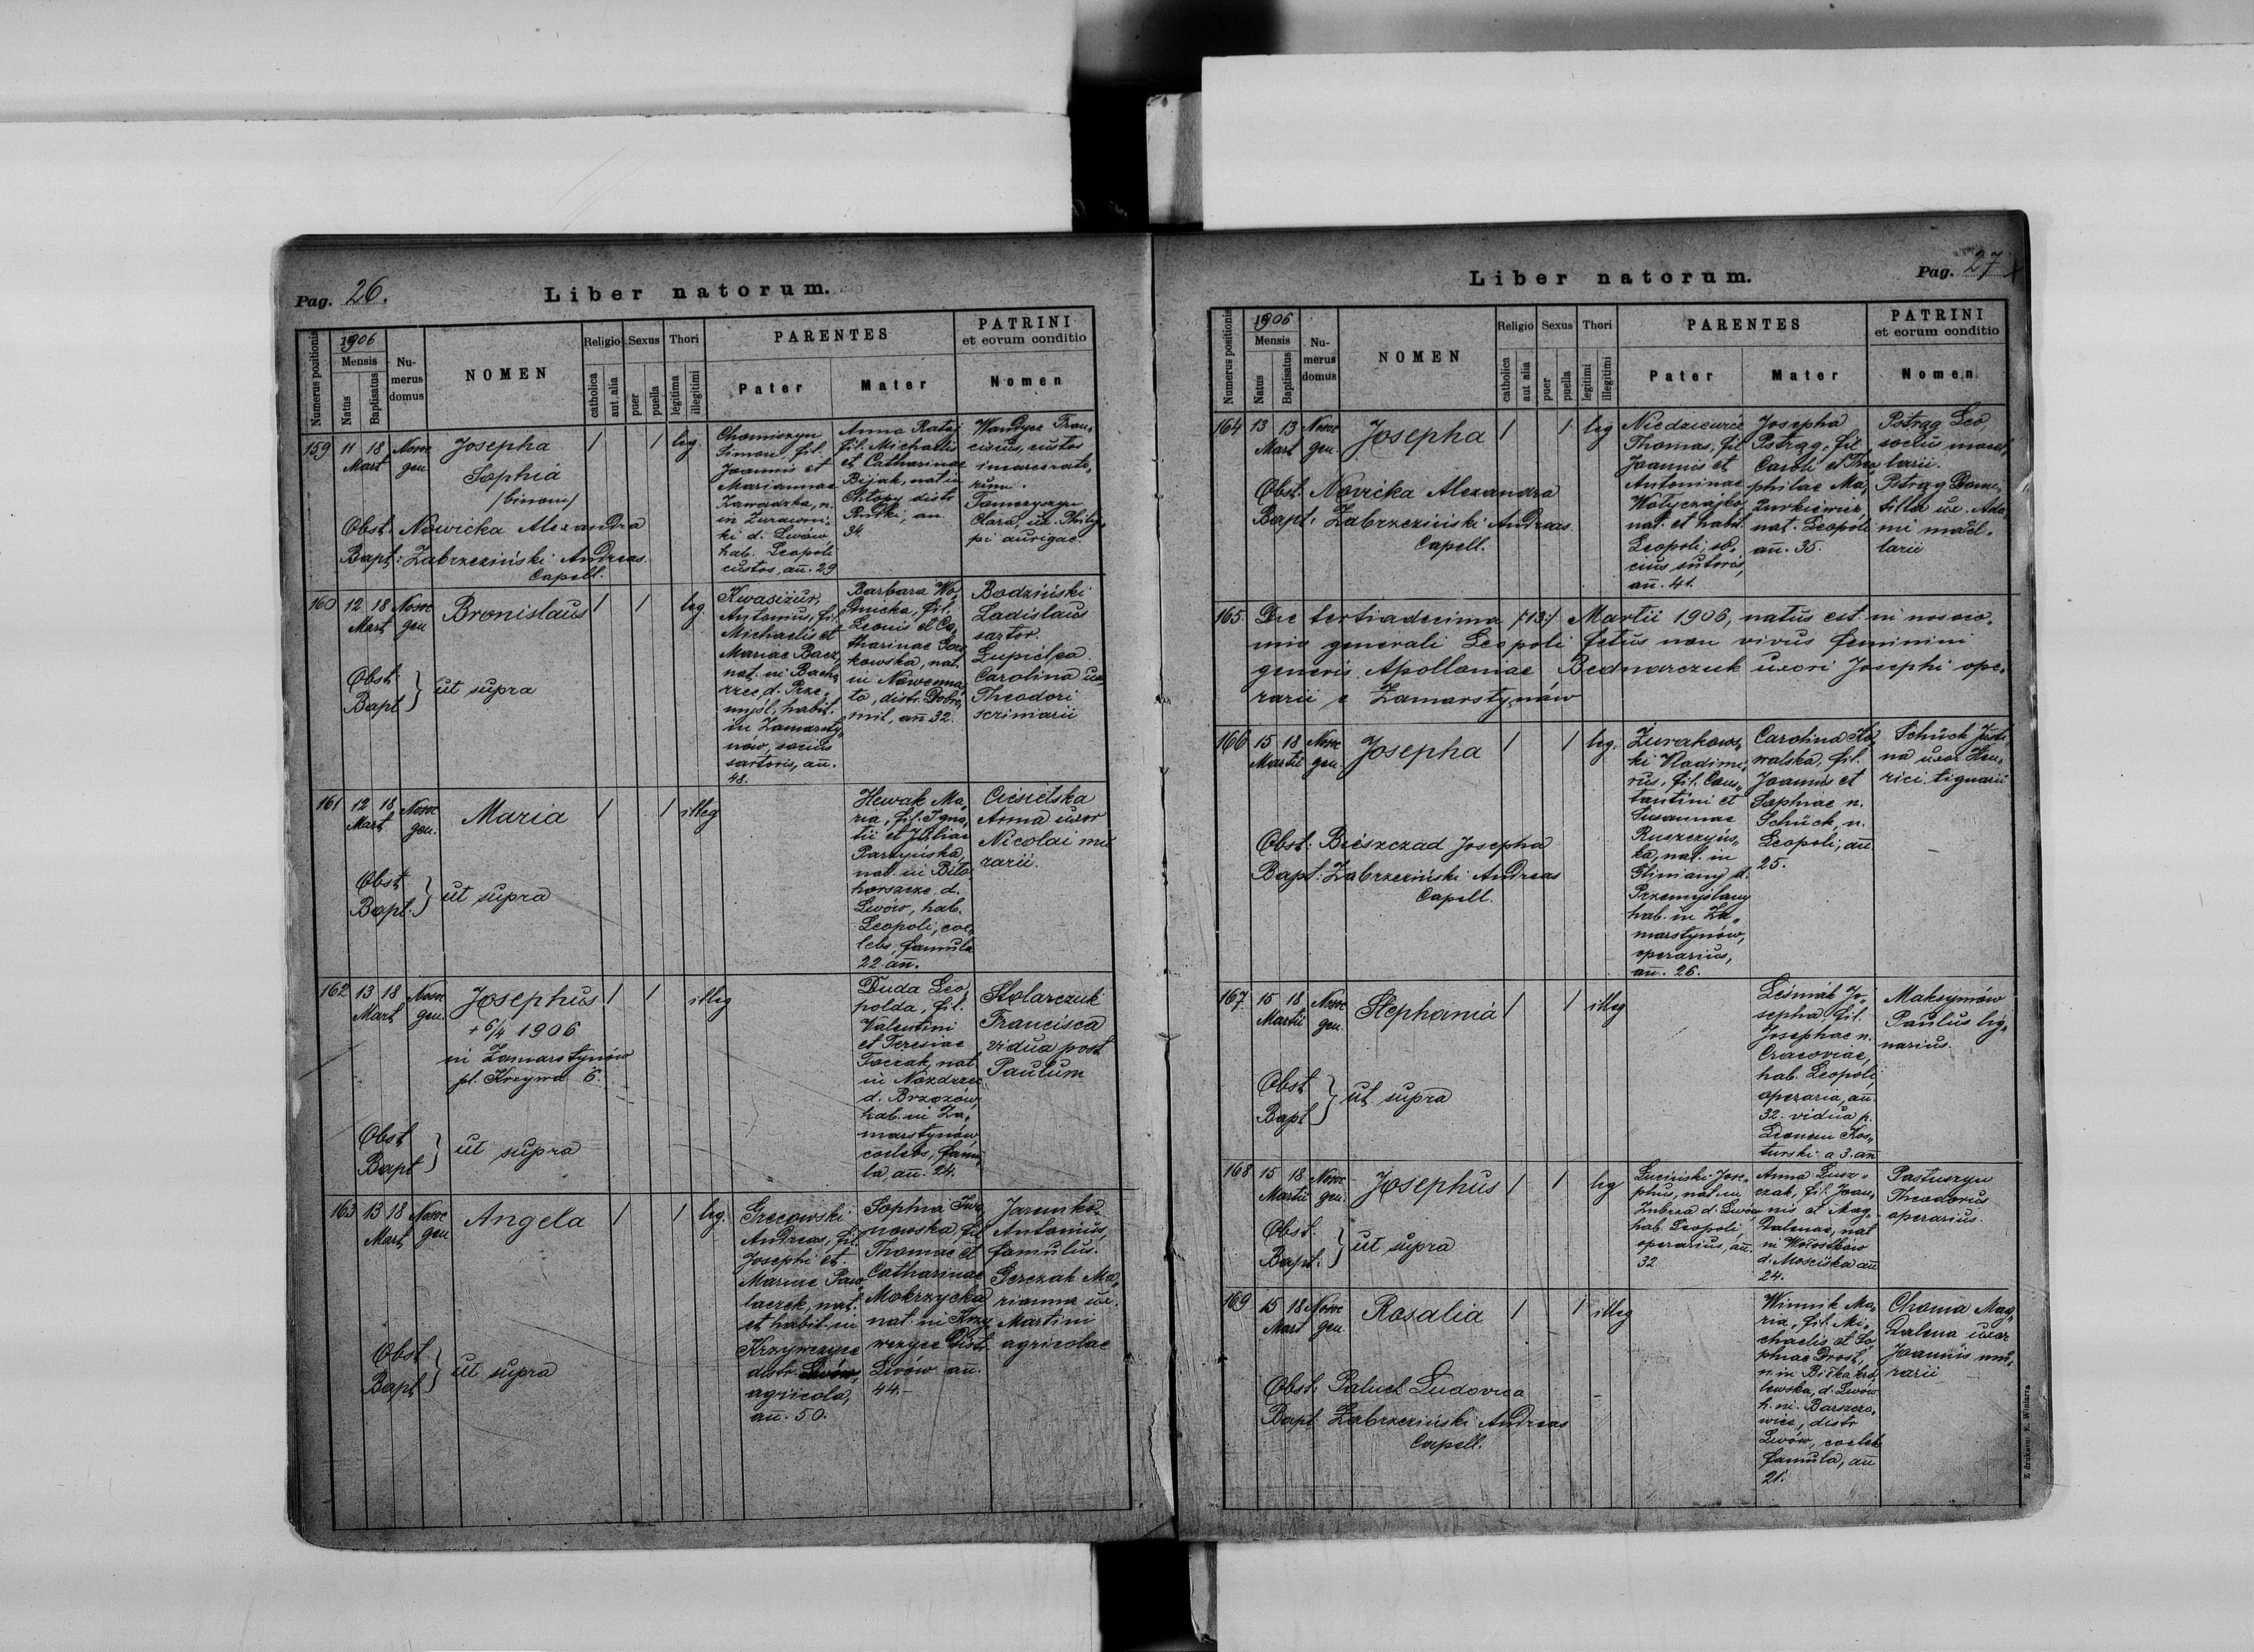 Pag. 26.
Liber natorum.
Numerus positionis
1906
Mensis
Natus
Baptisatus
Nu-
merus
domus
NOMEN
Religio
catholica
aut alia
Sexus
puer
puella
Thori
legitima
illegitimi
PARENTES
Pater
Mater
PATRINI
et eorum conditio
Nomen
159 11 18 Nosoc Josepha 1 1 leg.
Mart gen Sophia
/binom/
Obst. Nowicka Alexandra
Bapt: Zabrzeziński Andreas.
Capell.
Chomiszyn
Simon, fil.
Joannis et
Mariannae
Zawadzka, n.
in Żurawni-
ki d. Lwów
hab. Leopoli
custos, an. 29
Anna Rataj
fil. Michaelis
et Catharinae
Bijak, nat in
Chłopy distr
Rudki, an.
34.
Wandycz Fran„
ciscus, custos
incarcerato„
rum.
Tomczyszyn
Clara, ux. Philip„
pi aurigae.
160 12 18 Nosoc Bronislaus 1 1 leg.
Mart gen
Obst
Bapt } ut supra
Kwasiżur,
Antonius, fil.
Michaelis et
Mariae Bacz,
nat. in Bach„
rzec, d. Prze„
myśl, habit.
in Zamarsty„
nów, socius
sartoris, an.
48.
Barbara Wo„
źnicka, fil.
Leonis et Ca„
tharinae
kowska, nat.
in Nowemia„
sto, distr. Dobro„
mil, an 32.
Bodziński
Ladislaus
sartor.
Carolina ux
Theodori
scriniarii
161 12 18 Nosoc Maria 1 1 illeg
Mart gen.
Obst
Bapt. } ut supra
Hewak Ma„
ria, fil. Igna„
tii et Juliae
Partyńska,
nat. in Biło„
horszcze, d.
Lwów, hab.
Leopoli, coe„
lebs, famula
22 an.
Anna uxor
Nicolai mu
rarii.
162 13 18 Nosoc Josephus 1 1 illeg
Mart gen. + 6/4 1906
in Zamarstynów
pl. Krzywa 6.
Obst
Bapt } ut supra
Duda Leo„
polda, fil.
Valentini
et Teresiae
Toczek, nat.
in Nozdrzec
d. Brzozów,
hab. in Za„
marstynów
coelebs, famu„
la, an. 24.
Stolarczuk
Francisca
vidua post
Paulum
163 13 18 Nosoc Angela 1 1 leg.
Mart gen
Obst
Bapt } ut supra
Grecowski
Andreas, fil.
Josephi et
Mariae Paw„
laczek, nat.
et habit. in
Krzywczyce
distr. Lwów,
agricola,
an. 50.
Sophia
nowska, fil
Thomae et
Catharinae
Mokrzycka
nat. in Krzy„
wczyce Distr.
Lwów an.
44.-
Jaremko
Antonius,
famulus.
Gerczak Ma„
rianna ux.
Martini
agricolae
Pag. 27
Liber natorum.
Numerus positionis
1906
Mensis
Natus
Baptisatus
Nu-
merus
domus
NOMEN
Religio
catholica
aut alia
Sexus
puer
puella
Thori
legitimi
illegitimi
PARENTES
Pater
Mater
PATRINI
et eorum conditio
Nomen
164 13 13 Nosoc Josepha 1 1 leg
Mart gen.
Obst. Nowicka Alexandra
Bapt: Zabrzeziński Andreas
Capell.
Niedzięwicz
Thomas, fil
Joannis et
Antoninae
Wołyczajko
nat. et habit.
Leopoli, so„
cius sutoris,
an. 41.
Josepha
Pstrąg, fil
Caroli et Theo
philae Ma„
zurkiewicz,
nat. Leopoli
an. 35.
Pstrąg Leo,
socius macel„
larii.
Pstrąg Domi„
tilla ux. Ada„
mi macel„
larii
165. Die tertiadecima /:13:/ Martii 1906, natus est in nosoco„
mio generali Leopoli fetus non vivus feminini
generis Apolloniae Bednarczuk uxori Josephi ope„
rarii e Zamarstynów
166 15 18 Nosoc Josepha 1 1 leg.
Martii gen.
Obst: Bieszczad Josepha
Bapt: Zabrzeziński Andreas
Capell.
Żurakows„
ki Vladimi„
rus, fil. Cons„
tantini et
Susannae
Ruszczyńs„
ka, nat. in
Gliniany d.
Przemyślany
hab. in Za„
marstynów,
operarius,
an. 26.
Carolina Ko
walska, fil.
Joannis et
Sophiae n.
Schück, n.
Leopoli, an
25.
Schück Justi„
na uxor Hen„
rici tignarii
167 16 18 Nosoc Stephania 1 1 illeg
Martii gen.
Obst
Bapt } ut supra
Leśniak Jo„
sepha, fil.
Josephae n.
Cracoviae,
hab. Leopoli,
operaria, an.
32. vidua p.
Leonem Kos„
turski a 3. an
Maksymów
Paulus lig„
narius.
168 15 18 Nosoc Josephus 1 1 leg
Martii gen.
Obst.
Bapt. } ut supra
Luciński Jose„
phus, nat. in
Zubrza d. Lwów
hab. Leopoli,
operarius, an.
32
Anna Lusz„
czak, fil. Joan„
nis et Mag„
dalenae, nat
in Wołostków
d. Mościska an
24.
Pastuszyn
Theodorus
operarius.
169 15 18 Nosoc Rosalia 1 1 illeg
Mart gen.
Obst: Paluch Ludovica
Bapt Zabrzeziński Andreas
Capell.
Winnik Ma„
ria, fil. Mi„
chaelis et So
phiae Drost,
n. in Biłka kró
lewska, d. Lwów
h. in Barszczo„
wice, distr
Lwów, coeleb
famula, an
21.
Choma Mag„
dalena uxor
Joannis mu„
rarii
Z drukarni E. Winiarza